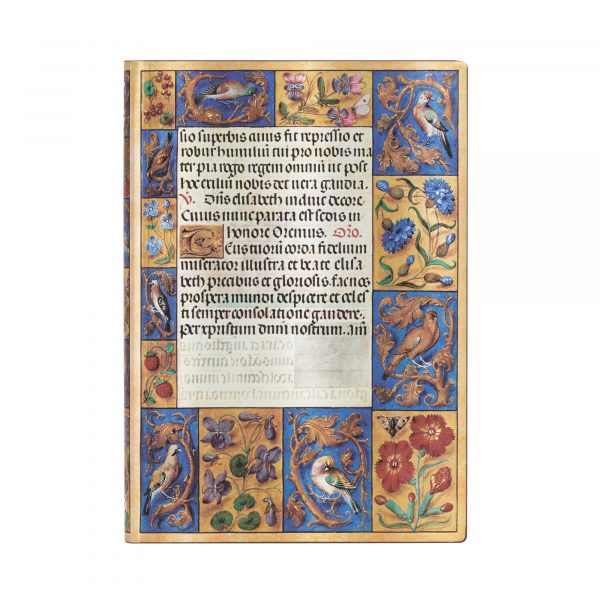 sio superbis cuius fit repressio et
robur humiliū cui pro nobis ma
ter pia rogo regem omniū ut post
hec exiliū nobis det uera gaudia.
V. Dn̄s elisabeth induit decore
Cuius nunc parata est sedis in
honore Oremus. Orō.
Tuorum corda fidelium
miserator illustra et beate elisa
beth precibus et gloriosis fac nos
prospera mundi despicere et celes
ti semper consolatione gaudere.
per xpristum dnm̄ nostrum. am̄